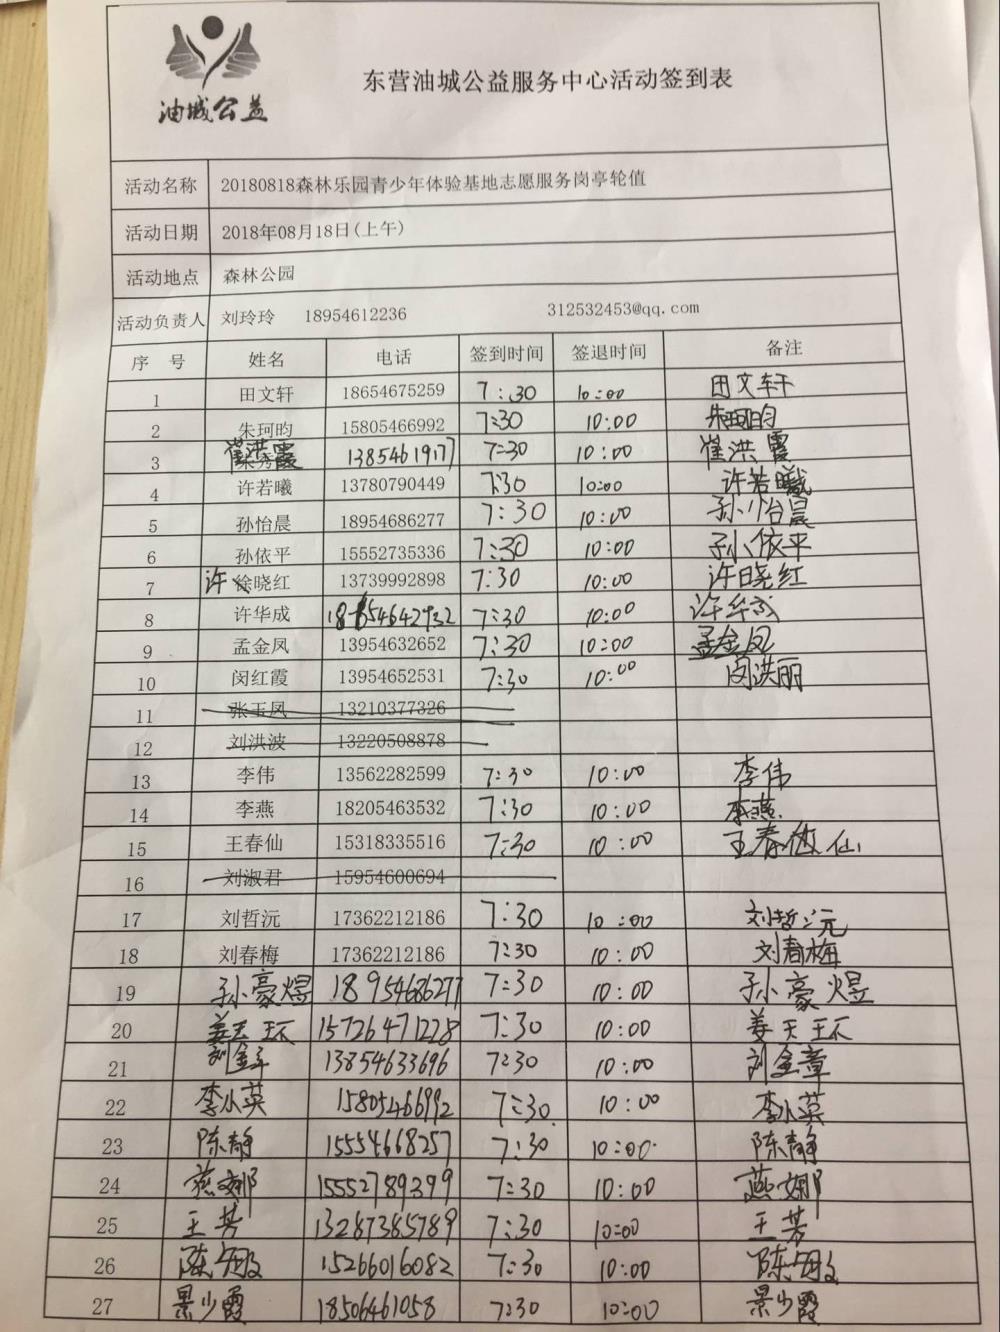 油城公益
东营油城公益服务中心活动签到表
活动名称 20180818森林乐园青少年体验基地志愿服务岗亭轮值
活动日期 2018年08月18日(上午)
活动地点 森林公园
活动负责人 刘玲玲 18954612236 312532453@qq.com
序 号 姓名 电话 签到时间 签退时间 备注
1 田文轩 18654675259 7:30 10:00 田文轩
2 朱珂昀 15805466992 7:30 10:00 朱珂昀
3 崔洪霞 13854619177 7:30 10:00 崔洪霞
4 许若曦 13780790449 7:30 10:00 许若曦
5 孙怡晨 18954686277 7:30 10:00 孙怡晨
6 孙依平 15552735336 7:30 10:00 孙依平
7 许 徐晓红 13739992898 7:30 10:00 许晓红
8 许华成 18654642932 7:30 10:00 许华成
9 孟金凤 13954632652 7:30 10:00 孟金凤
10 闵红霞 13954652531 7:30 10:00 闵洪丽
11 张玉凤 13210377326
12 刘洪波 13220508878
13 李伟 13562282599 7:30 10:00 李伟
14 李燕 18205463532 7:30 10:00 李燕
15 王春仙 15318335516 7:30 10:00 王春仙
16 刘淑君 15954600694
17 刘哲沅 17362212186 7:30 10:00 刘哲沅
18 刘春梅 17362212186 7:30 10:00 刘春梅
19 孙豪煜 18954686277 7:30 10:00 孙豪煜
20 姜天环 15726471228 7:30 10:00 姜天环
21 刘金章 13854633696 7:30 10:00 刘金章
22 李小英 15805466992 7:30 10:00 李小英
23 陈静 15554668257 7:30 10:00 陈静
24 燕娜 15552789399 7:30 10:00 燕娜
25 王芳 13287385789 7:30 10:00 王芳
26 陈敏 15266016082 7:30 10:00 陈敏
27 景少霞 18506461058 7:30 10:00 景少霞